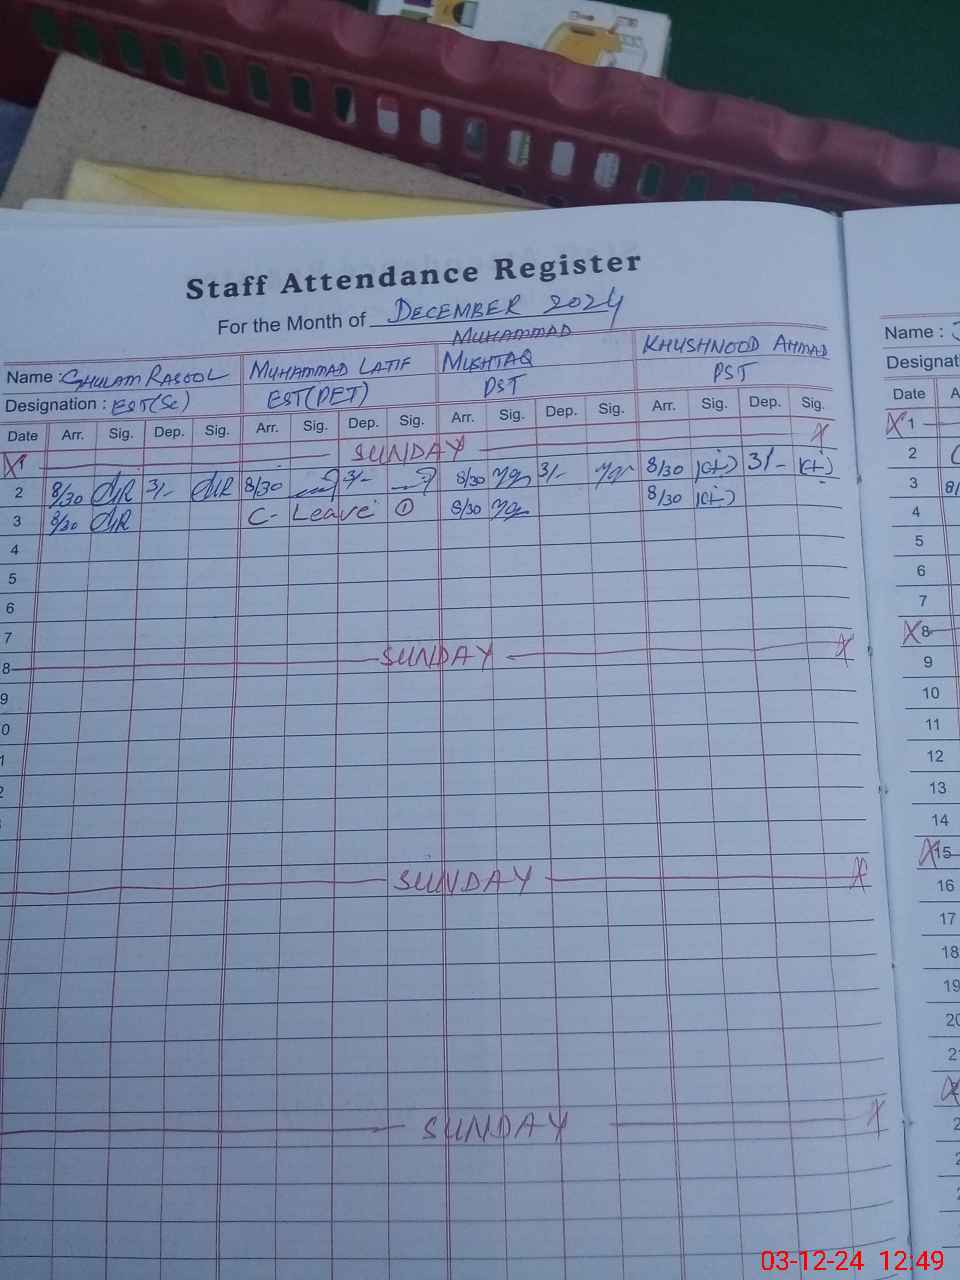 Staff Attendance Register
For the Month of DECEMBER 2024
Name : GHULAM RASOOL MUHAMMAD LATIF MUHAMMAD MUSHTAQ KHUSHNOOD AHMAD
Designation : EST(Sc) EST(PET) PST PST
Date Arr. Sig. Dep. Sig. Arr. Sig. Dep. Sig. Arr. Sig. Dep. Sig. Arr. Sig. Dep. Sig.
X1 SUNDAY X
2 8/30 3/- 8/30 3/- 8/30 3/- 8/30 3/-
3 8/30 C- Leave ① 8/30 8/30
4
5
6
7
8 SUNDAY X
9
0
1
2
SUNDAY X
SUNDAY X
Name :
Designati
Date A
X1
2
3 8/
4
5
6
7
X8
9
10
11
12
13
14
X15
16
17
18
19
20
2
2
2
03-12-24 12:49